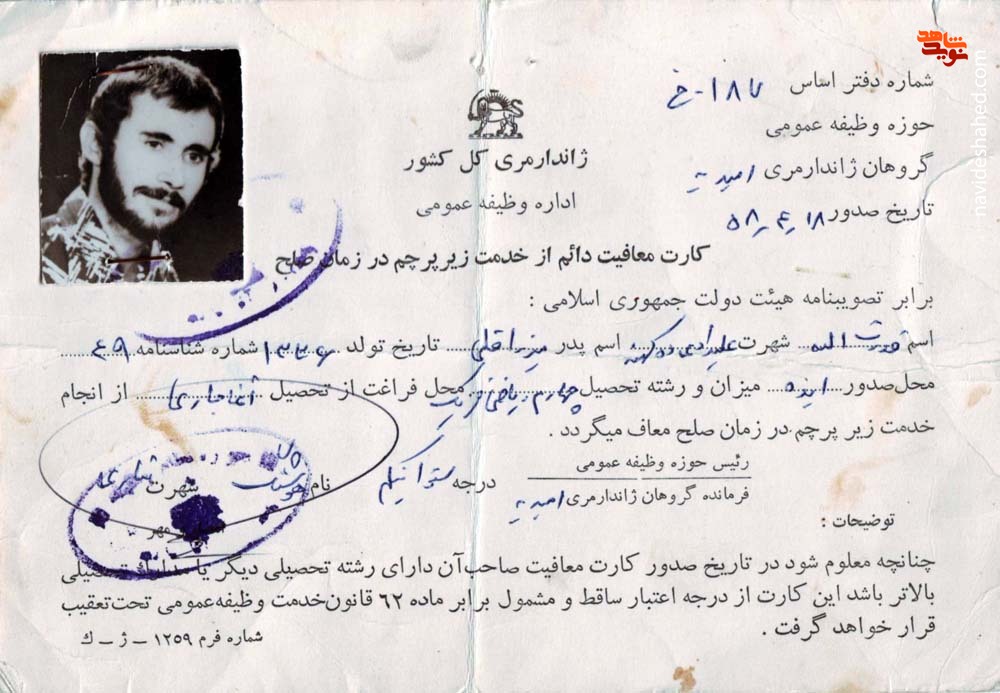 شاهد
نوید
navideshahed.com
شماره دفتر اساس ۱۸۷-خ
حوزه وظیفه عمومی
گروهان ژاندارمری امیدیه
تاریخ صدور ۱۸ر۴ر۵۸
ژاندارمری کل کشور
اداره وظیفه عمومی
کارت معافیت دائم از خدمت زیر پرچم در زمان صلح
برابر تصویبنامه هیئت دولت جمهوری اسلامی :
اسم قدرت اله شهرت علیمرادی اسم پدر میرزاقلی تاریخ تولد ۱۳۳۶ شماره شناسنامه ۴۹
محل صدور ایذه میزان و رشته تحصیل چهارم ریاضی فیزیک محل فراغت از تحصیل آغاجاری از انجام
خدمت زیر پرچم در زمان صلح معاف میگردد .
رئیس حوزه وظیفه عمومی
فرمانده گروهان ژاندارمری امیدیه
درجه ستوانیکم نام هوشنگ شهرت
مهر
توضیحات :
چنانچه معلوم شود در تاریخ صدور کارت معافیت صاحب آن دارای رشته تحصیلی دیگر یا مدارك تحصیلی
بالاتر باشد این کارت از درجه اعتبار ساقط و مشمول برابر ماده ۶۲ قانون خدمت وظیفه عمومی تحت تعقیب
قرار خواهد گرفت .
شماره فرم ۱۲۵۹ – ژ – ك